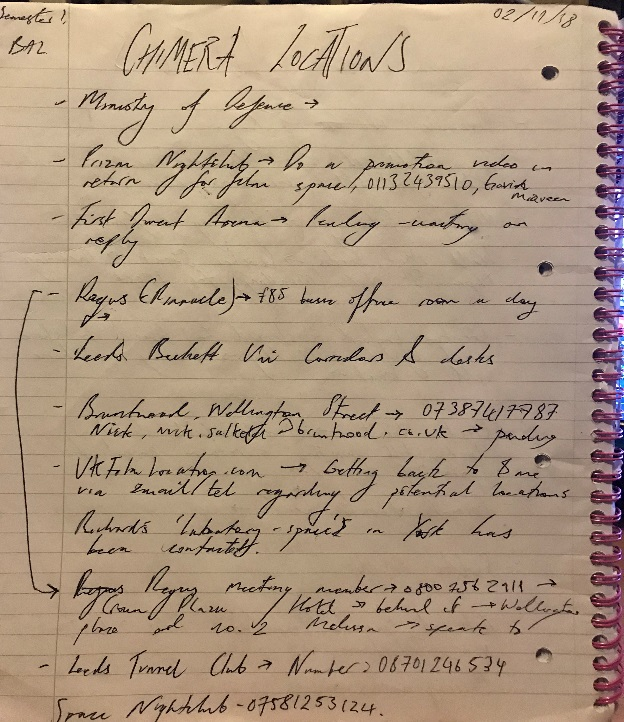 Semester 1,
02/11/18
BA2
CHIMERA LOCATIONS
- Ministry of Defence →
- Prizm Nightclub → Do a promotion video in
return for film space, 01132439510, Gavin
- First Direct Arena → Pending - waiting on
reply
- Regus (Pinnacle) → £85 basic office room a day
- Leeds Beckett Uni Corridors & desks
- Bruntwood, Wellington Street → 07387417787
Nick, bruntwood.co.uk → pending
- UKFilmLocation.com → Getting back to me
via email/tel regarding potential locations
Richard's 'Laboratory - space's in York has
been contacted.
Regus meeting member → →
Crown Plaza Hotel → behind it → Wellington
place and no. 2 Melissa → speak to
- Leeds Tunnel Club → Number → 08701246534
Space Nightclub - 07581253124.